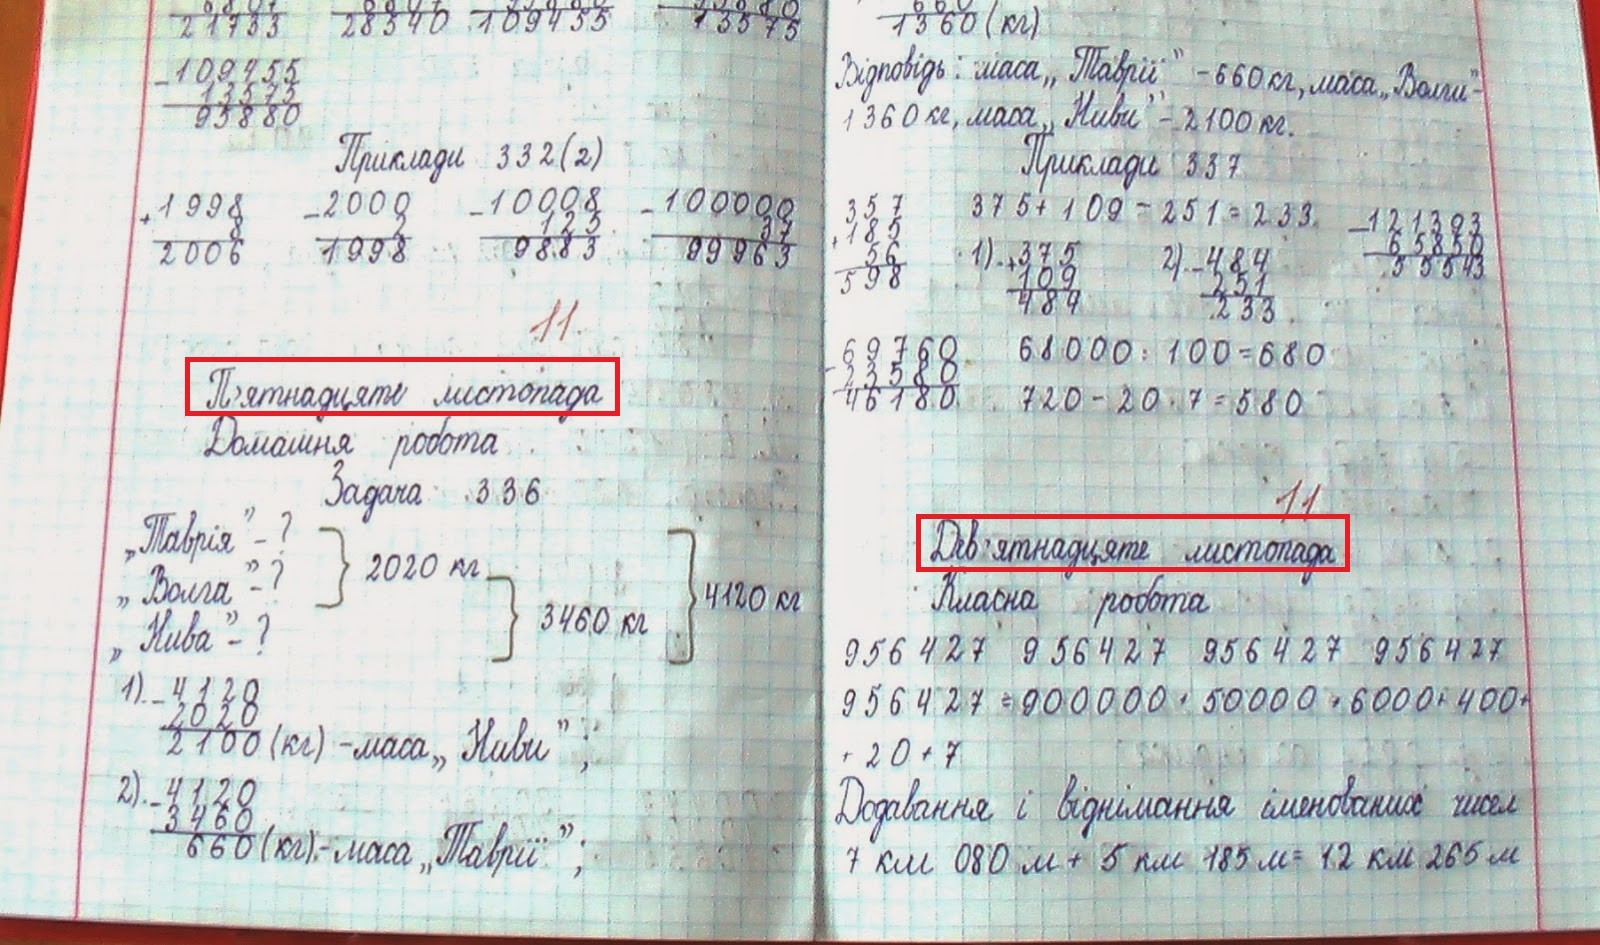 21733 28340 109455 13575
- 109455
13575
95880
Приклади 332(2)
+ 1998 - 2000 - 10008 - 100000
8 2 125 37
2006 1998 9883 99963
11
П'ятнадцяте листопада
Домашня робота
Задача 336
„Таврія” - ?
„Волга” - ?
„Нива” - ?
2020 кг
3460 кг
4120 кг
1). - 4120
2020
2100 (кг) - маса „Ниви”;
2). - 4120
3460
660 (кг). - маса „Таврії”;
1360 (кг)
Відповідь: маса „Таврії” - 660 кг, маса „Волги” -
1360 кг, маса „Ниви” - 2100 кг.
Приклади 337
357
+ 185
56
598
375 + 109 - 251 = 233.
1). + 375
109
484
2). - 484
251
233
- 121393
65850
55543
69760
- 23580
46180
68000 : 100 = 680
720 - 20 · 7 = 580
11
Дев'ятнадцяте листопада
Класна робота
956427 956427 956427 956427
956427 = 900000 + 50000 + 6000 + 400 +
+ 20 + 7
Додавання і віднімання іменованих чисел
7 км 080 м + 5 км 185 м = 12 км 265 м